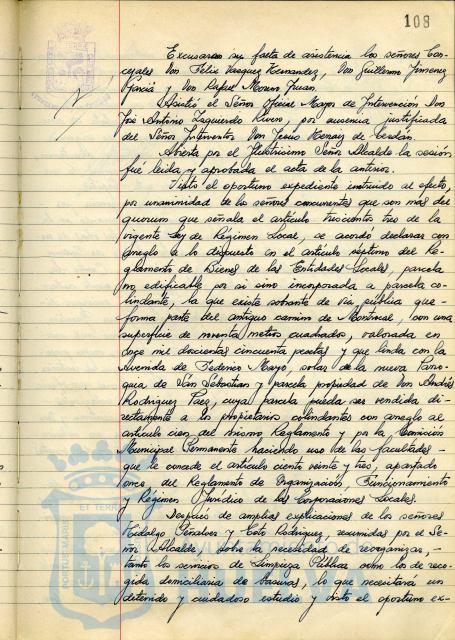 108
Excusaron su falta de asistencia los señores Con-
cejales Don Felix Vazquez Hernandez, Don Guillermo Jimenez
Garcia y Don Rafael
Asistió el Señor Oficial Mayor de Intervención Don
José Antonio Izquierdo Rivero, por ausencia justificada
del Señor Interventor Don Jesus
Abierta por el Ilustrisimo Señor Alcalde la sesión
fué leida y aprobada el acta de la anterior.
Visto el oportuno expediente instruido al efecto,
por unanimidad de los señores concurrentes que son mas del
quorum que señala el artículo trescientos tres de la
vigente Ley de Régimen Local, se acordó declarar con
arreglo a lo dispuesto en el artículo séptimo del Re-
glamento de Bienes de las Entidades Locales, parcela
no edificable por si sino incorporada a parcela co-
lindante, la que existe sobrante de via pública que
forma parte del antiguo camino de Montreal, con una
superficie de noventa metros cuadrados, valorada en
doce mil doscientas cincuenta pesetas y que linda con la
Avenida de Federico Mayo, solar de la nueva Parro-
quia de San Sebastian y parcela propiedad de Don Andrés
Rodriguez Paez, cuya parcela pueda ser vendida di-
rectamente a los propietarios colindantes con arreglo al
artículo cien del mismo Reglamento y por la Comisión
Municipal Permanente haciendo uso de las facultades -
que le concede el artículo ciento veinte y tres, apartado
once, del Reglamento de Organización, Funcionamiento
y Régimen Jurídico de las Corporaciones Locales.
Después de amplias explicaciones de los señores
Hidalgo y Coto Rodriguez, resumidas por el Se-
ñor Alcalde, sobre la necesidad de reorganizar, -
tanto los servicios de Limpieza Pública como los de reco-
gida domiciliaria de basuras, lo que necesitará un
detenido y cuidadoso estudio y visto el oportuno ex-